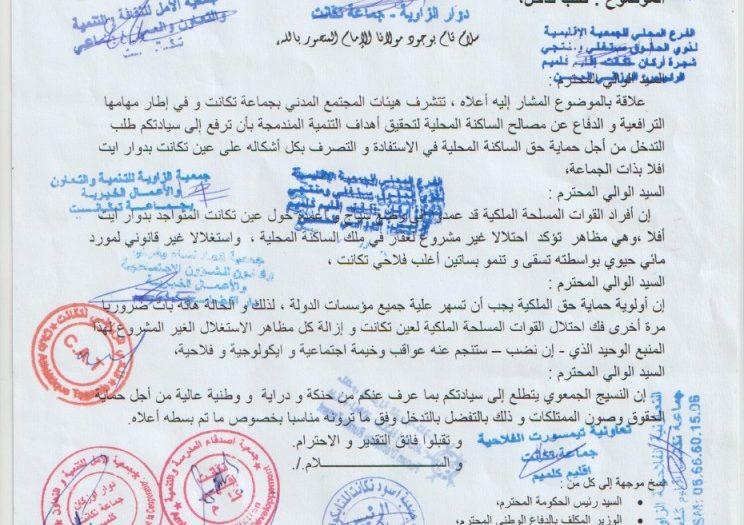 جمعية الأمل للثقافة و التنمية
والتعاون و
دوار الزاوية - جماعة تكانت
سلام تام بوجود مولانا الإمام المنصور بالله،
الفرع المحلي للجمعية الإقليمية
لذوي الحقوق مستغلي ومنتجي
شجرة أركان تكانت إقليم كلميم
السيد الوالي المحترم :
علاقة بالموضوع المشار إليه أعلاه ، تتشرف هيئات المجتمع المدني بجماعة تكانت و في إطار مهامها
الترافعية و الدفاع عن مصالح الساكنة المحلية لتحقيق أهداف التنمية المندمجة بأن ترفع إلى سيادتكم طلب
التدخل من أجل حماية حق الساكنة المحلية في الاستفادة و التصرف بكل أشكاله على عين تكانت بدوار ايت
افلا بذات الجماعة،
جمعية الزاوية للتنمية والتعاون
والأعمال الخيرية
بجماعة تيغانست
الفرع المحلي للجمعية الإقليمية
السيد الوالي المحترم :
إن أفراد القوات المسلحة الملكية قد عمدوا حول عين تكانت المتواجد بدوار ايت
أفلا ،وهي مظاهر تؤكد احتلالا غير مشروع لعقار في ملك الساكنة المحلية ، واستغلالا غير قانوني لمورد
مائي حيوي بواسطته تسقى و تنمو بساتين أغلب فلاحي تكانت ،
السيد الوالي المحترم :
والأعمال الخيرية
إن أولوية حماية حق الملكية يجب أن تسهر علية جميع مؤسسات الدولة ، لذلك و الحالة هاته بات ضروريا
مرة أخرى فك احتلال القوات المسلحة الملكية لعين تكانت و إزالة كل مظاهر الاستغلال الغير المشروع لهذا
المنبع الوحيد الذي - إن نضب – ستنجم عنه عواقب وخيمة اجتماعية و ايكولوجية و فلاحية،
السيد الوالي المحترم :
إن النسيج الجمعوي يتطلع إلى سيادتكم بما عرف عنكم من حنكة و دراية و وطنية عالية من أجل حماية
الحقوق وصون الممتلكات و ذلك بالتفضل بالتدخل وفق ما ترونه مناسبا بخصوص ما تم بسطه أعلاه.
و تقبلوا فائق التقدير و الاحترام.
و الســـــــلام./.
تعاونية تيمسورت الفلاحية
جماعة تكانت
اقليم كلميم
جمعية أصدقاء المدرسة و التنمية
دوار اوركان
جماعة تكانت
كلميم
نسخ موجهة إلى كل من :
السيد رئيس الحكومة المحترم،
الوزير المكلف بالدفاع الوطني المحترم،